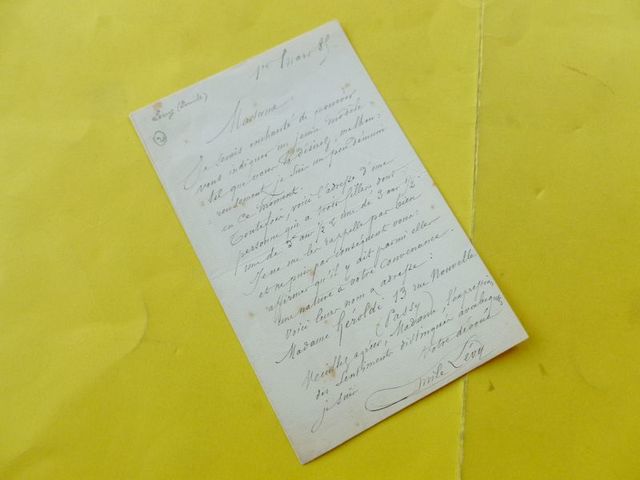 1er Mars 85
Lévy (Emile)
Madame
Je serais enchanté de pouvoir
vous indiquer un jeune modèle
tel que vous le désirez, malheu-
reusement je suis un peu démuni
en ce moment.
Toutefois, voici l'adresse d'une
personne qui a trois filles, dont
une de ans 1/2 & une de 3 ans 1/2.
Je ne me les rappelle pas bien
et ne puis par conséquent vous
affirmer qu'il y ait parmi elles
une nature à votre convenance.
Voici leur nom & adresse :
Madame Hérolde 13 rue Nouvelle
(Passy)
Veuillez agréer, Madame, l'expression
des sentiments distingués avec lesquels
je suis votre dévoué
Emile Lévy